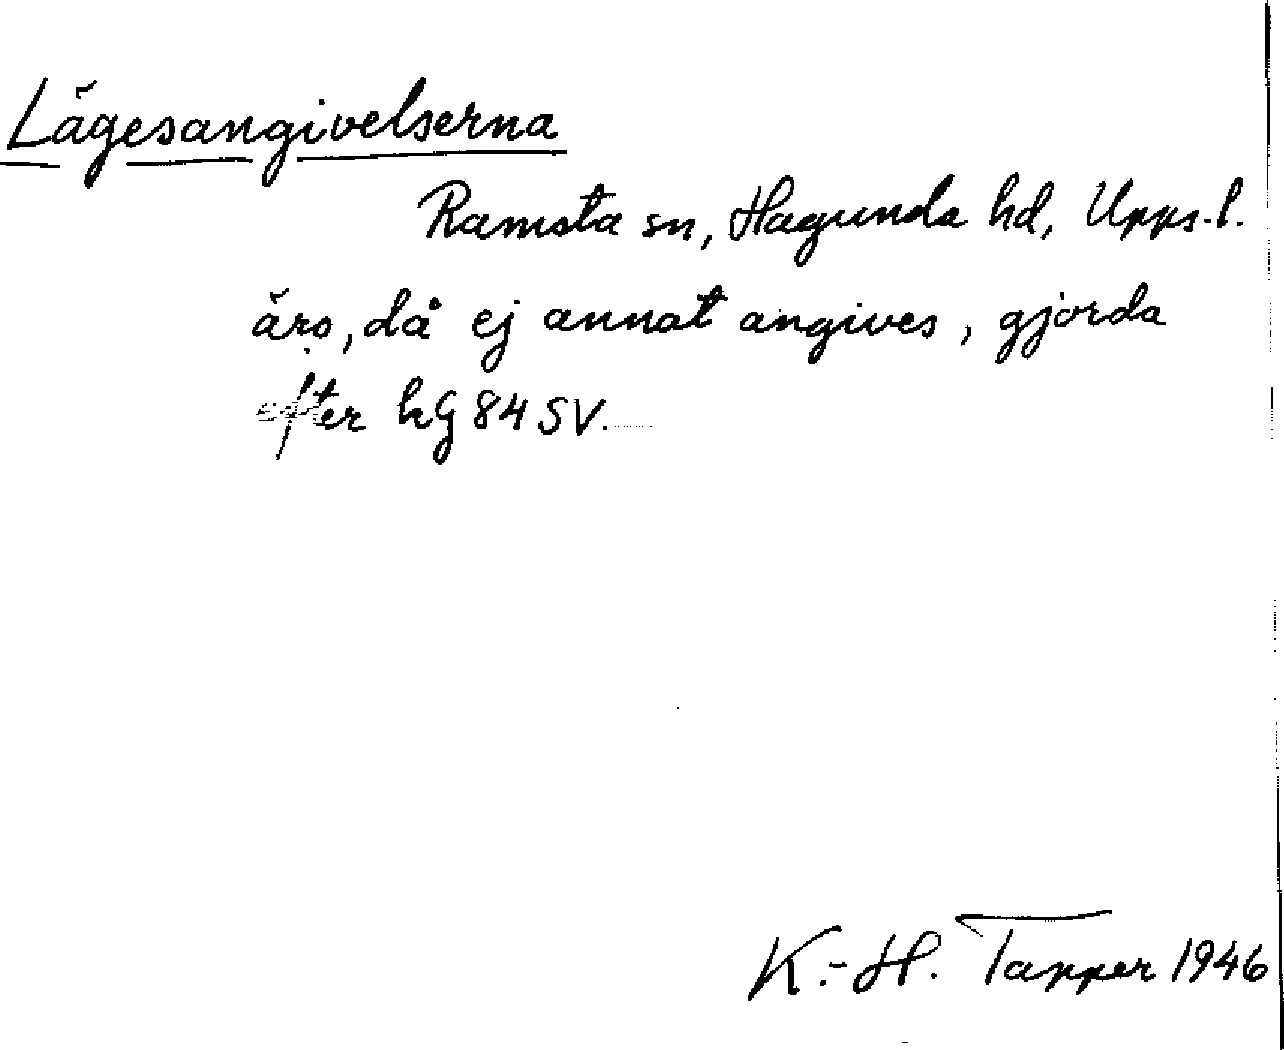 Lägesangivelserna
Ramsta sn, Hagunda hd, Upps. l.
äro, då ej annat angives, gjorda
efter kG 84 SV.
K.-H. Tapper 1946